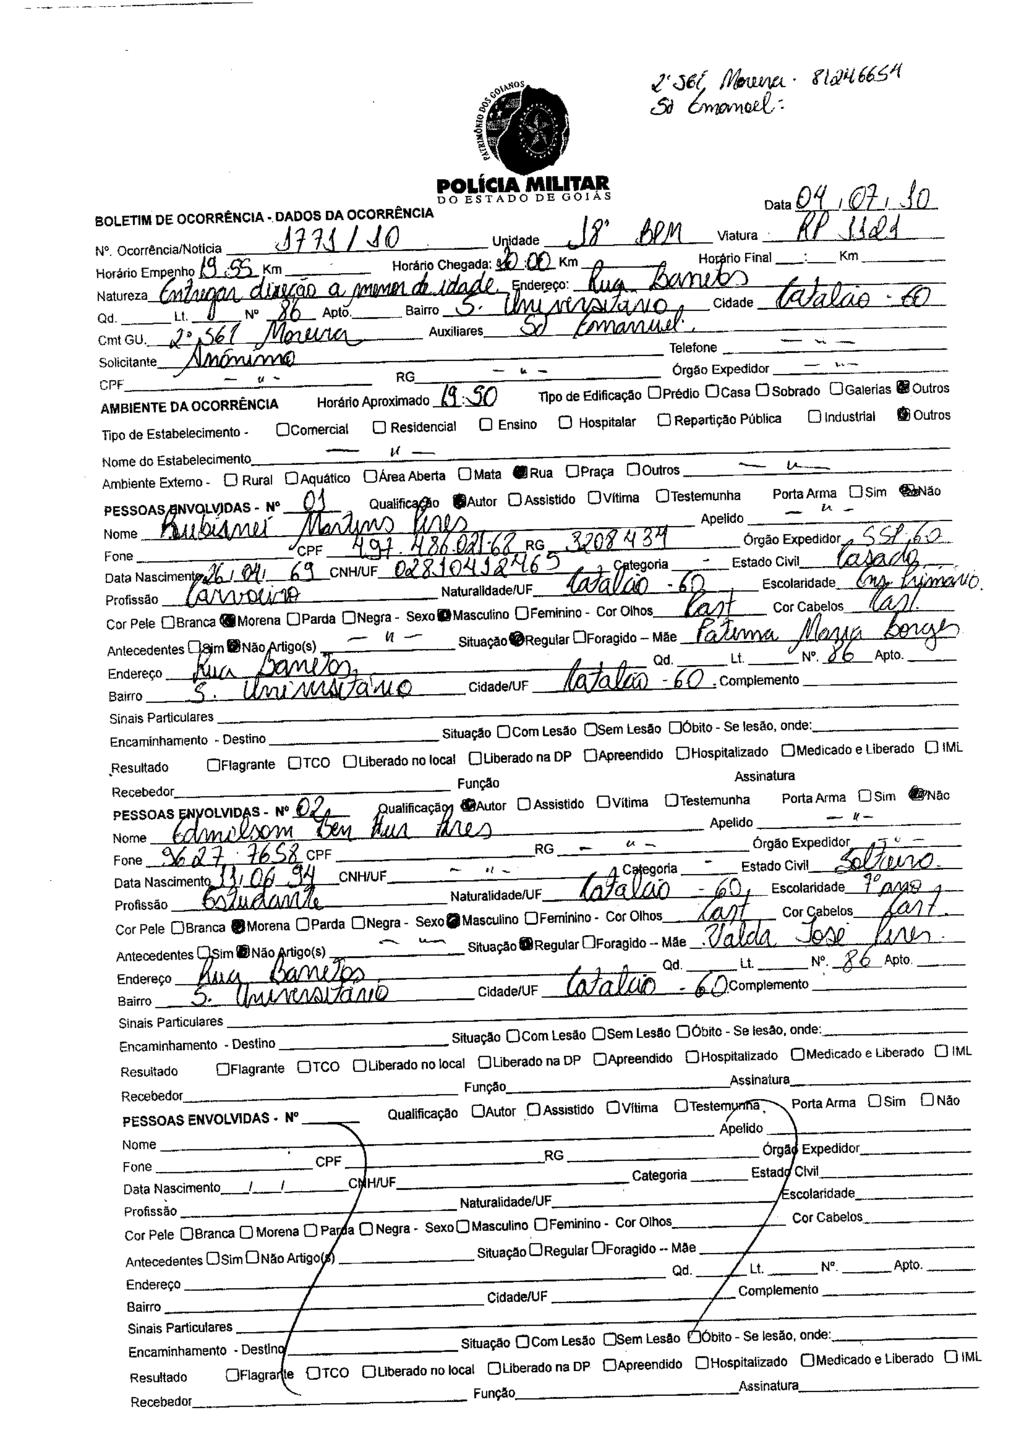 2º Sgt Moreira - 81246654
Sd Emanoel:
PATRIMÔNIO DOS GOIANOS
POLÍCIA MILITAR
DO ESTADO DE GOIÁS
BOLETIM DE OCORRÊNCIA - DADOS DA OCORRÊNCIA Data 04/07/10
Nº. Ocorrência/Notícia 1771/10 Unidade 18º BPM Viatura RP 1121
Horário Empenho 19:55 Km Horário Chegada: 20:00 Km Horário Final : Km
Natureza Entregar direção a menor de idade. Endereço: Rua Barretos
Qd. Lt. Nº 86 Apto. Bairro S. Universitário Cidade Catalão - GO
Cmt GU. 2º Sgt Moreira Auxiliares Sd Emanuel.
Solicitante Anônimo Telefone
CPF RG Órgão Expedidor
AMBIENTE DA OCORRÊNCIA Horário Aproximado 19:50 Tipo de Edificação Prédio Casa Sobrado Galerias Outros
Tipo de Estabelecimento - Comercial Residencial Ensino Hospitalar Repartição Pública Industrial Outros
Nome do Estabelecimento
Ambiente Externo - Rural Aquático Área Aberta Mata Rua Praça Outros
PESSOAS ENVOLVIDAS - Nº 01 Qualificação Autor Assistido Vítima Testemunha Porta Arma Sim Não
Nome Martins Pires Apelido
Fone CPF 497.486.021-68 RG 3208434 Órgão Expedidor SSP-GO
Data Nascimento 26/04/69 CNH/UF 02810412465 Categoria Estado Civil Casado
Profissão Carvoeiro Naturalidade/UF Catalão - GO Escolaridade Ens. Primário
Cor Pele Branca Morena Parda Negra - Sexo Masculino Feminino - Cor Olhos Cast Cor Cabelos Cast.
Antecedentes Sim Não Artigo(s) Situação Regular Foragido - Mãe Fatima Maria Borges
Endereço Rua Barretos, Qd. Lt. Nº. 86 Apto.
Bairro S. Universitário Cidade/UF Catalão - GO. Complemento
Sinais Particulares
Encaminhamento - Destino Situação Com Lesão Sem Lesão Óbito - Se lesão, onde:
Resultado Flagrante TCO Liberado no local Liberado na DP Apreendido Hospitalizado Medicado e Liberado IML
Recebedor Função Assinatura
PESSOAS ENVOLVIDAS - Nº 02 Qualificação Autor Assistido Vítima Testemunha Porta Arma Sim Não
Nome Edmilsom Ben Hur Pires Apelido
Fone 9627-7658 CPF RG Órgão Expedidor
Data Nascimento 11/06/94 CNH/UF Categoria Estado Civil Solteiro.
Profissão Estudante Naturalidade/UF Catalão - GO Escolaridade 7º ano
Cor Pele Branca Morena Parda Negra - Sexo Masculino Feminino - Cor Olhos Cast Cor Cabelos Cast.
Antecedentes Sim Não Artigo(s) Situação Regular Foragido - Mãe Valda José Pires.
Endereço Rua Barretos Qd. Lt. Nº. 86 Apto.
Bairro S. Universitário Cidade/UF Catalão - GO. Complemento
Sinais Particulares
Encaminhamento - Destino Situação Com Lesão Sem Lesão Óbito - Se lesão, onde:
Resultado Flagrante TCO Liberado no local Liberado na DP Apreendido Hospitalizado Medicado e Liberado IML
Recebedor Função Assinatura
PESSOAS ENVOLVIDAS - Nº Qualificação Autor Assistido Vítima Testemunha Porta Arma Sim Não
Nome Apelido
Fone CPF RG Órgão Expedidor
Data Nascimento / / CNH/UF Categoria Estado Civil
Profissão Naturalidade/UF Escolaridade
Cor Pele Branca Morena Parda Negra - Sexo Masculino Feminino - Cor Olhos Cor Cabelos
Antecedentes Sim Não Artigo(s) Situação Regular Foragido -- Mãe
Endereço Qd. Lt. Nº. Apto.
Bairro Cidade/UF Complemento
Sinais Particulares
Encaminhamento - Destino Situação Com Lesão Sem Lesão Óbito - Se lesão, onde:
Resultado Flagrante TCO Liberado no local Liberado na DP Apreendido Hospitalizado Medicado e Liberado IML
Recebedor Função Assinatura